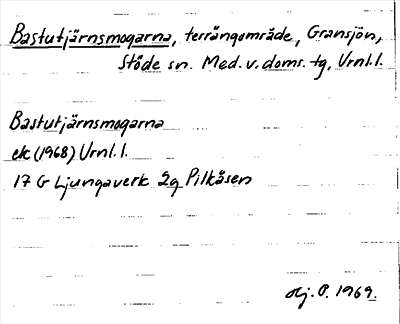 Bastutjärnsmogarna, terrängområde, Gransjön,
Stöde sn. Med. v. doms. tg, Vrnl. l.
Bastutjärnsmogarna
ek (1968) Vrnl. l.
17 G Ljungaverk 2g Pilkåsen
Hj. P. 1969.